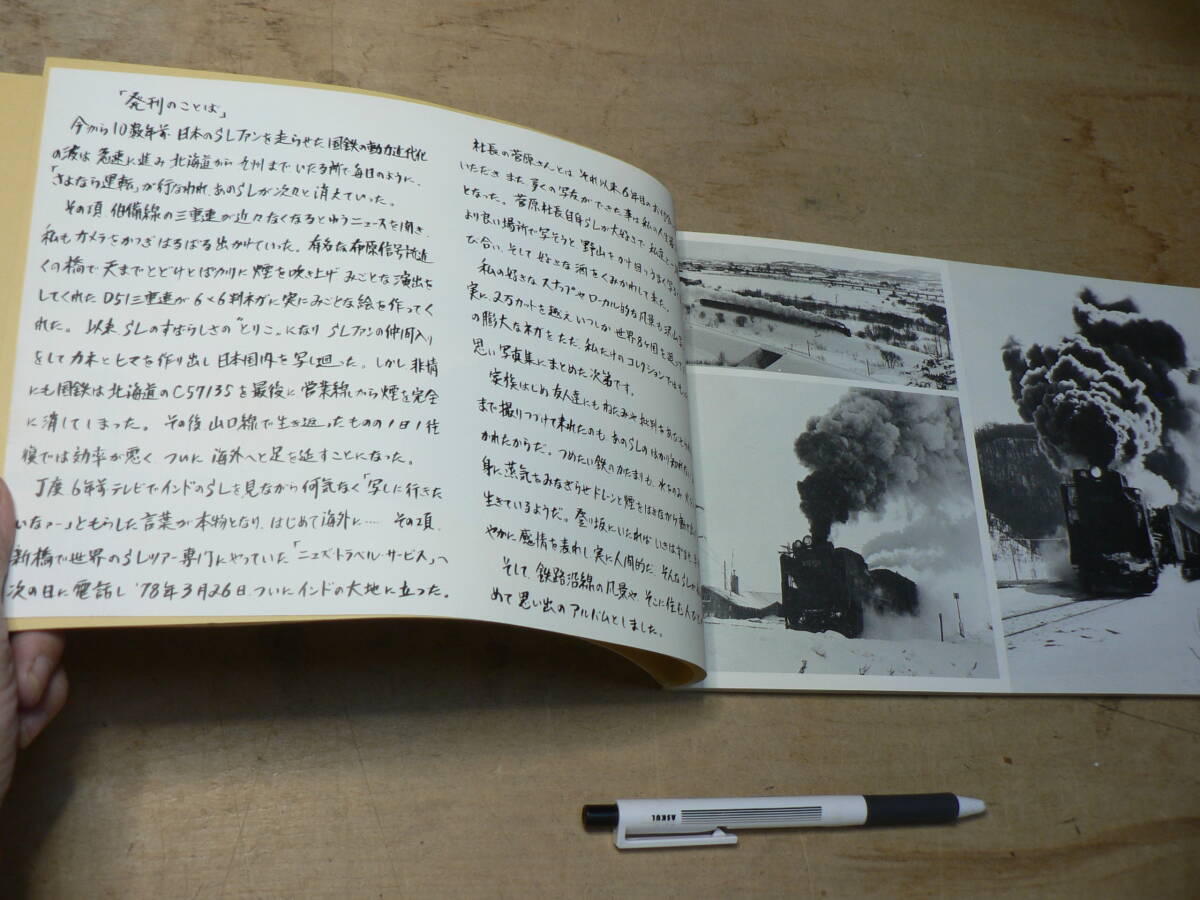 「発刊のことば」
今から10数年前、日本のSLファンを走らせた国鉄の動力近代化
の波は急速に進み北海道から九州までいたる所で毎日のように、
「さよなら運転」が行なわれ、あのSLが次々と消えていった。
その頃、伯備線の三重連が近々なくなるとゆうニュースを聞き、
私もカメラをかつぎはるばる出かけていった。有名な布原信号所近
くの橋で天までとどけとばかりに煙を吹き上げみごとな演出を
してくれたD51三重連が6×6判ネガに実にみごとな絵を作ってく
れた。以来、SLのすばらしさの"とりこ"になりSLファンの仲間入り
をしてカネとヒマを作り出し日本国内を写し廻った。しかし非情
にも国鉄は北海道のC57135を最後に営業線から煙を完全
に消してしまった。その後山口線で生き返ったものの1日1往
復では効率が悪く、ついに海外へと足を延すことになった。
丁度6年前テレビでインドのSLを見ながら何気なく「写しに行きた
いなァー」ともらした言葉が本物となり、はじめて海外に…… その頃
新橋で世界のSLツアー専門にやっていた「ニュズ・トラベル・サービス」へ
次の日に電話し'78年3月26日ついにインドの大地に立った。
社長の菅原さんとは、それ以来6年目のお
いただき、また、多くの写友ができた事は私の人生
となった。菅原社長自身SLが大好きで、私達と
より良い場所で写そうと野山をかけ回り
び合い、そして好きな酒をくみかわして来た。
私の好きなスナップやローカル的な風景も
実に、2万カットを越え、いつしか世界8ヶ国を
の膨大なネガをただ、私だけのコレクションでは
思い写真集にまとめた次第です。
家族はじめ友人達にもねたみや批判を
まで撮りつづけて来れたのも、あのSLのはかり知れない
かれたからだ。つめたい鉄のかたまりも、水をのみ
身に蒸気をみなぎらせドレーンと煙をはきながら
生きているようだ。登り坂にいたれば
やかに感情を表わし実に人間的だ。そんなSL
そして、鉄路沿線の風景や、そこに住む人
めて思い出のアルバムとしました。
ASKUL